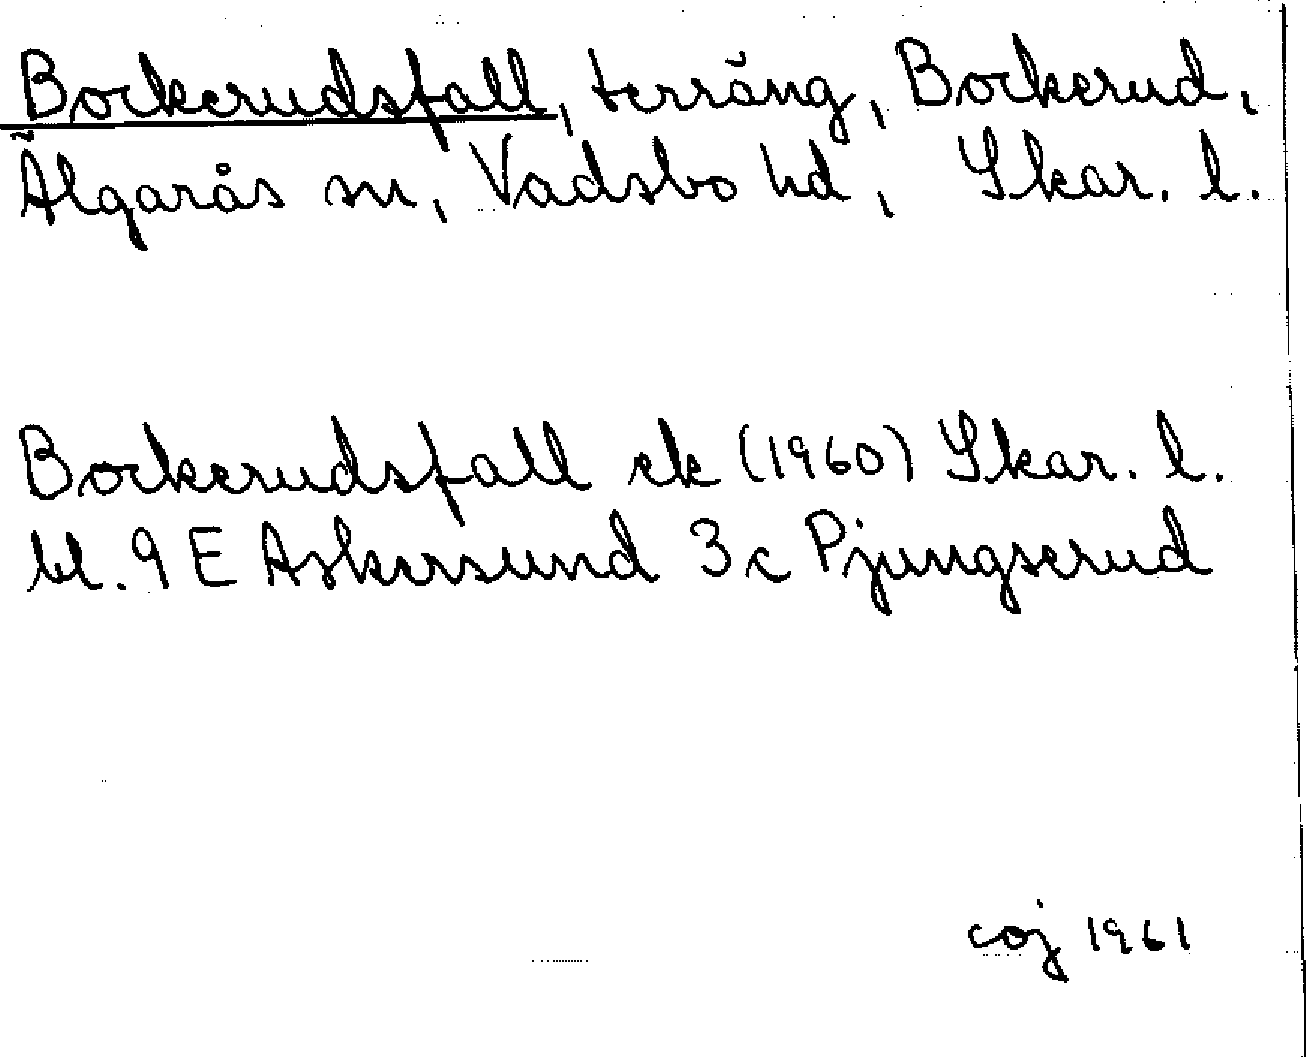 Bockerudsfall, terräng, Bockerud,
Älgarås sn, Vadsbo hd, Skar. l.
Bockerudsfall ek (1960) Skar. l.
bl. 9 E Askersund 3c Pjungserud
coj 1961